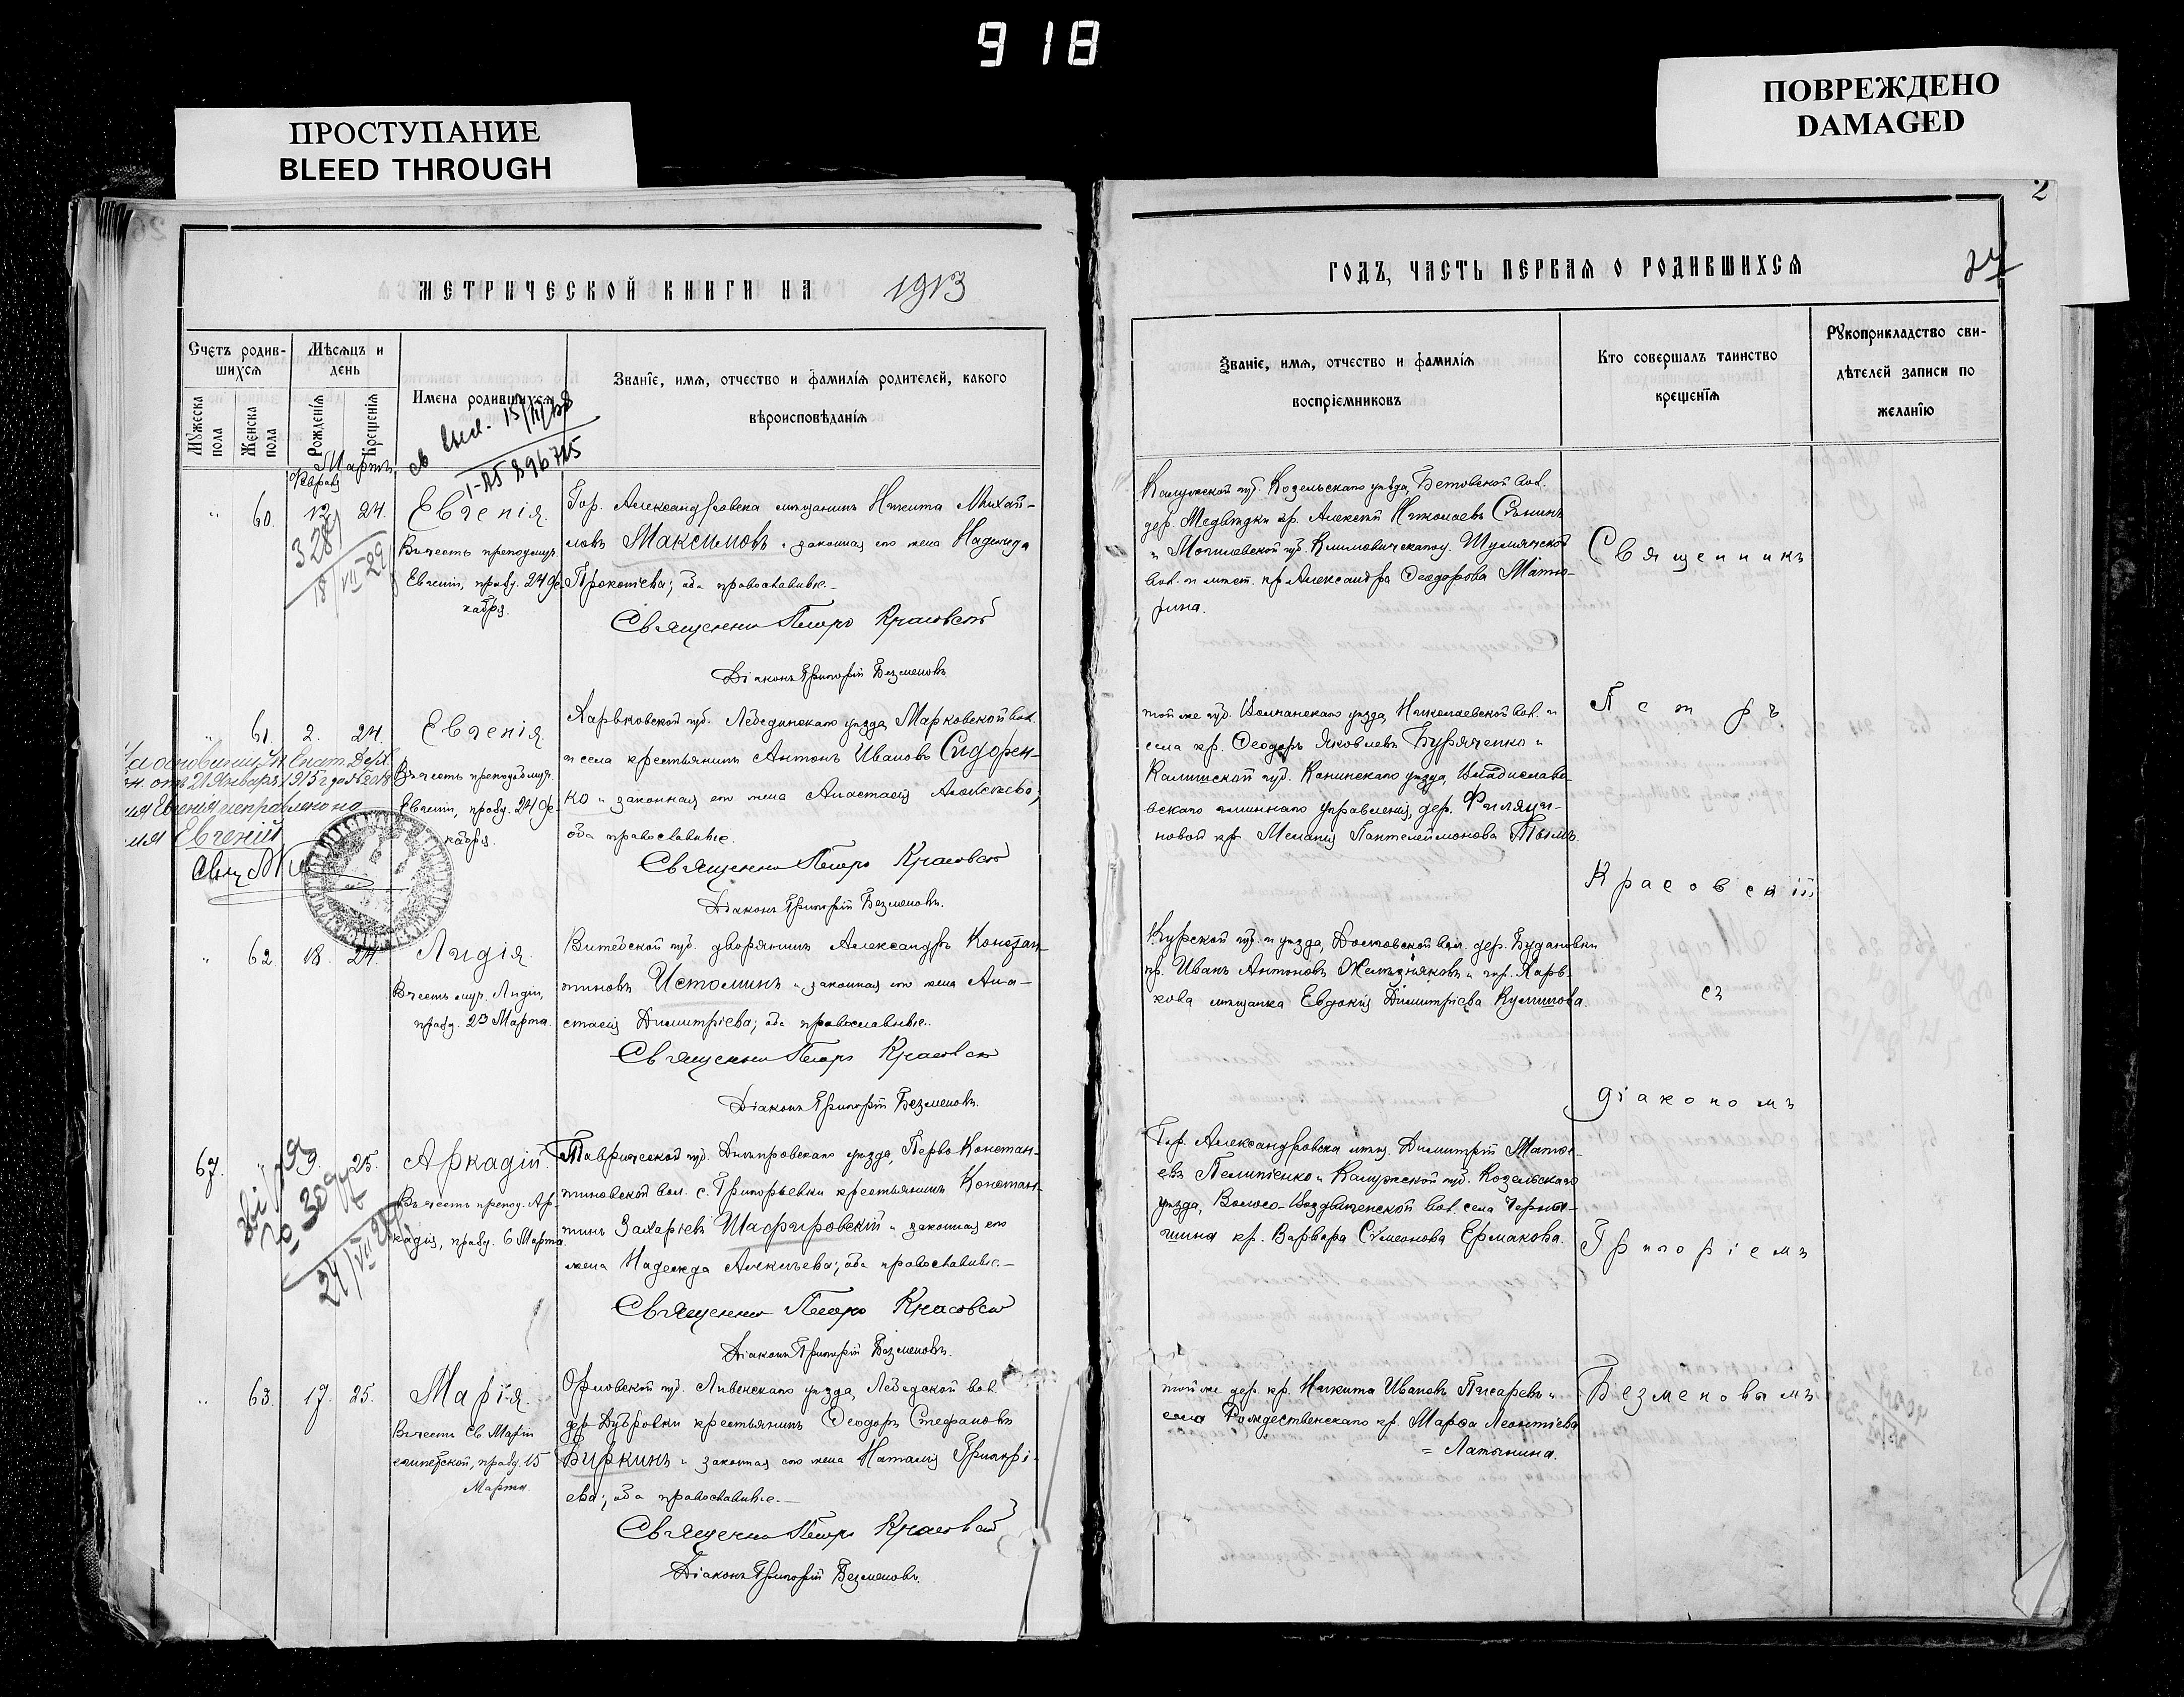 918
ПРОСТУПАНИЕ
BLEED THROUGH
ПОВРЕЖДЕНО
DAMAGED
МЕТРИЧЕСКОЙ КНИГИ НА 1913
Счетъ родив-
шихся
Мѣсяцъ и
день
Мужеска
пола
Женска
пола
Рожденія
Крещенія
Имена родившихся
Званіе, имя, отчество и фамилія родителей, какого
вѣроисповѣданія
15/III/58
896715
Февраля Мартъ
60. 12 24. Евгенія.
Въ честь преподмуч.
Евгеніи, празд. 24 Де-
кабря.
Гор. Александровска мѣщанинъ Никита Михай-
ловъ Максимовъ и законная его жена Надежда
Прокопіева; оба православные.
3281
18/VII-29
Священникъ Петръ Красовскій
Діаконъ Григорій Безменовъ.
61. 2. 24. Евгенія
Въ честь преподобмуч.
Евгеніи, празд. 24 Де-
кабря.
Харьковской губ. Лебединскаго уѣзда, Марковской вол.
и села крестьянинъ Антонъ Ивановъ Сидорен-
ко и законная его жена Анастасія Алексѣева;
оба православные.
отъ 21 Января 1915 года №
имя Евгенія исправлено на
имя Евгеній
Священникъ Петръ Красовскій
Діаконъ Григорій Безменовъ.
62. 18. 24. Лидія.
Въ честь муч. Лидіи,
празд. 23 Марта.
Витебской губ. дворянинъ Александръ Констан-
тиновъ Истоминъ и законная его жена Ана-
стасія Димитріева; оба православные.
Священникъ Петръ Красовскій
Діаконъ Григорій Безменовъ.
67. 9. 25. Аркадій.
Въ честь препод. Ар-
кадія, празд. 6 Марта.
Таврической губ. Днѣпровскаго уѣзда, Перво-Констан-
тиновской вол. с. Григорьевки крестьянинъ Констан-
тинъ Захаріевъ Шафировскій и законная его
жена Надежда; оба православные.
24/VII
Священникъ Петръ Красовскій
Діаконъ Григорій Безменовъ.
63. 17. 25. Марія.
Въ честь Св. Маріи
египетской, празд. 15
Марта
Орловской губ. Ливенскаго уѣзда, вол.
дер. Дубровки крестьянинъ Ѳеодоръ Стефановъ
Биркинъ и законная его жена Наталія Григорі-
ева; оба православные.
Священникъ Петръ Красовскій
Діаконъ Григорій Безменовъ.
2
ГОДЪ, ЧАСТЬ ПЕРВАЯ О РОДИВШИХСЯ
27
Званіе, имя, отчество и фамилія
воспріемниковъ
Кто совершалъ таинство
крещенія
Рукоприкладство сви-
дѣтелей записи по
желанію
Калужской губ. Козельскаго уѣзда, Бетовской вол.
дер. Медвѣдки кр. Алексѣй Николаевъ
и Могилевской губ. Климовичскаго у. Шумячской
вол. и мѣст. кр. Александра Ѳеодорова Матю-
рина.
той же губ. Волчанскаго уѣзда, Николаевской вол. и
села кр. Ѳеодоръ Яковлевъ Буряченко и
Калишской губ. Конинскаго уѣзда, Владиславо-
вскаго гминнаго управленія, дер.
новой кр. Меланія Пантелеймонова
Курской губ. и уѣзда, вол. дер. Будановки
кр. Иванъ Антоновъ Желѣзняковъ и гор. Харь-
кова мѣщанка Евдокія Димитріева
Гор. Александровска мѣщ. Димитрій Матѳі-
евъ Пелипенко и Калужской губ. Козельскаго
уѣзда, Волосо-Воздвиженской вол. села Черны-
шина кр. Варвара Сѵмеонова Ермакова.
той же дер. кр. Никита Ивановъ Писаревъ и
села Рождественскаго кр. Марѳа Леонтіева
Латынина.
Священникъ
Петръ
Красовскій
съ
діакономъ
Григоріемъ
Безменовымъ.